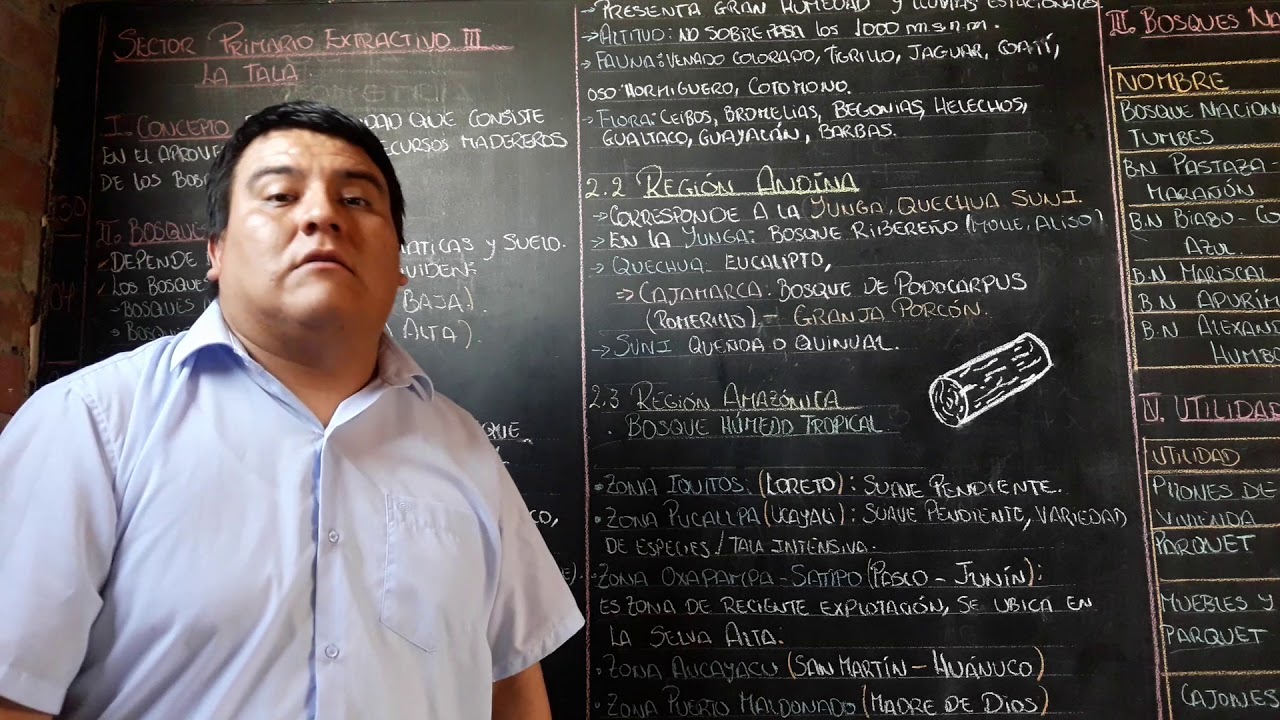 SECTOR PRIMARIO EXTRACTIVO III
LA TALA
I. CONCEPTO
QUE CONSISTE
EN EL RECURSOS MADEREROS
DE LOS
II. BOSQUES
Y SUELO.
DEPENDE
LOS BOSQUES
BOSQUES BAJA).
ALTA).
→ PRESENTA GRAN HUMEDAD Y LLUVIAS ESTACIONALES
→ ALTITUD: NO SOBREPASA LOS 1000 m.s.n.m.
→ FAUNA: VENADO COLORADO, TIGRILLO, JAGUAR, COATÍ,
OSO HORMIGUERO, COTOMONO.
→ FLORA: CEIBOS, BROMELIAS, BEGONIAS, HELECHOS,
GUALTACO, GUAYACÁN, BARBAS.
2.2 REGIÓN ANDINA
→ CORRESPONDE A LA YUNGA, QUECHUA SUNI.
→ EN LA YUNGA: BOSQUE RIBEREÑO (MOLLE, ALISO)
→ QUECHUA EUCALIPTO,
⇒ CAJAMARCA: BOSQUE DE PODOCARPUS
(ROMERILLO) - GRANJA PORCÓN.
→ SUNI QUEÑOA O QUINUAL.
2.3 REGIÓN AMAZÓNICA
. BOSQUE HÚMEDO TROPICAL
• ZONA IQUITOS: (LORETO): SUAVE PENDIENTE.
• ZONA PUCALLPA (UCAYALI): SUAVE PENDIENTE, VARIEDAD
DE ESPECIES / TALA INTENSIVA.
• ZONA OXAPAMPA - SATIPO (PASCO - JUNÍN):
ES ZONA DE RECIENTE EXPLOTACIÓN, SE UBICA EN
LA SELVA ALTA:
• ZONA AUCAYACU (SAN MARTÍN - HUÁNUCO)
• ZONA PUERTO MALDONADO (MADRE DE DIOS)
III. BOSQUES
NOMBRE
BOSQUE NACION
TUMBES
B.N PASTAZA -
MARAÑÓN
B.N BIABO - CO
AZUL
B.N MARISCAL
B.N APURÍM
B.N ALEXAN
HUMBO
IV. UTILIDAD
UTILIDAD
DE
VIVIENDA
PARQUET
MUEBLES Y
PARQUET
CAJONES